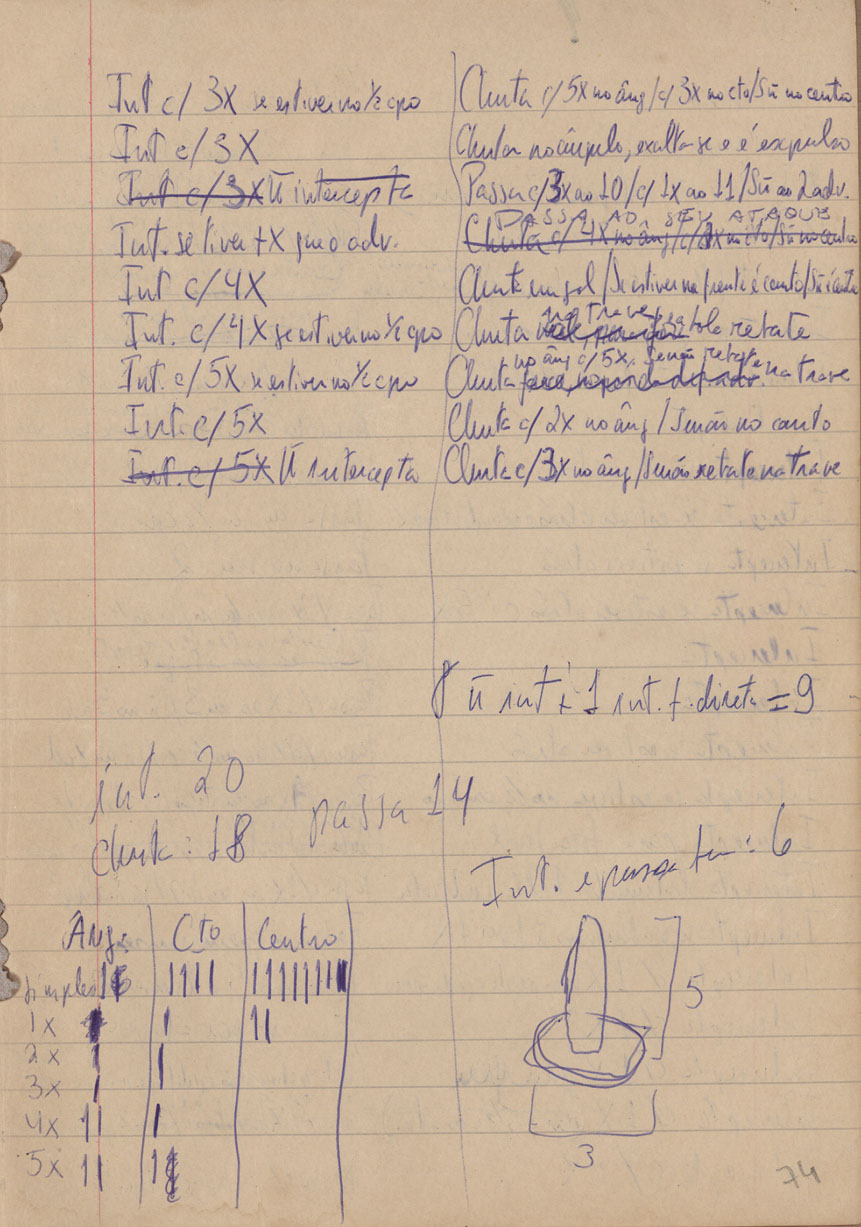 Int c/ 3X se estiver no ½ cpo
Int c/ 3X
Int c/ 3X ñ intercepta
Int. se tiver +X q o adv.
Int c/ 4X
Int. c/ 4X se estiver no ½ cpo
Int. c/ 5X se estiver no ½ cpo
Int. c/ 5X
Int. c/ 5X ñ intercepta
Chuta c/ 5X no âng/c/ 3X no cto/Sñ no centro
Chuta no ângulo, exalta-se e é expulso
Passa c/ 3X ao 10/c/ 1X ao 11/Sñ ao 2 adv.
PASSA AO SEU ATAQUE
Chuta c/ 4X no âng/c/ X no cto/Sñ no centro
Chuta em gol/Se estiver na frente é canto/Sñ
na trave
Chuta rebate
no âng c/ 5X, senão rebate
Chuta na trave
Chuta c/ 2X no âng/Senão no canto
Chuta c/ 3X no âng/Senão rebate na trave
8 ñ int + 1 int. f. direta = 9
int. 20
passa 14
Chuta: 18
Int. e passa : 6
Âng: Cto Centro
simples
1X
2X
3X
4X
5X
5
3
74